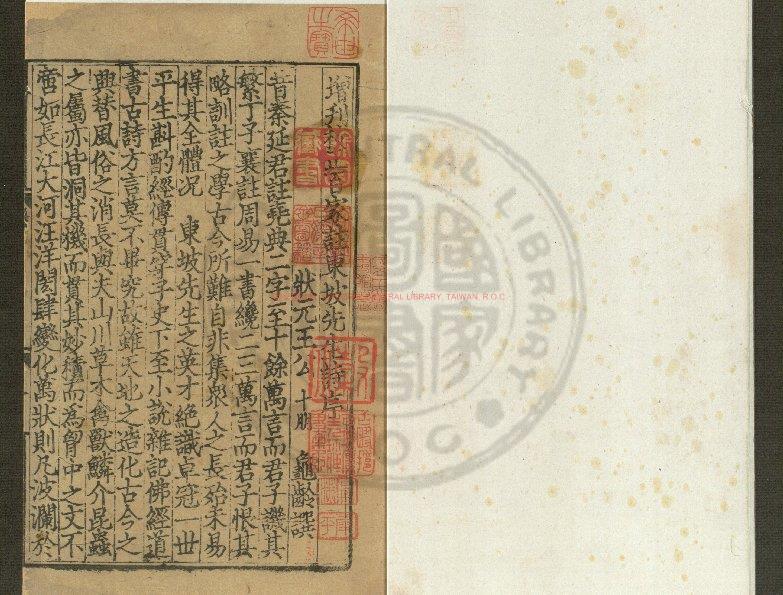 增刊校正百家註東坡先生詩序
狀元王公 十朋 龜齡 譔
昔秦延君註堯典二字至十餘萬言而君子譏其
繁丁子襄註周易一書纔二三萬言而君子恨其
略訓註之學古今所難自非集衆人之長殆未易
得其全體況 東坡先生之英才絕識卓冠一世
平生斟酌經傳貫穿子史下至小說雜記佛經道
書古詩方言莫不畢究故雖天地之造化古今之
興替風俗之消長與夫山川草木禽獸鱗介昆蟲
之屬亦皆洞其機而貫其妙積而為胷中之文不
啻如長江大河汪洋閎肆變化萬狀則凡波瀾於
CENTRAL LIBRARY
R O C
CENTRAL LIBRARY, TAIWAN, R.O.C